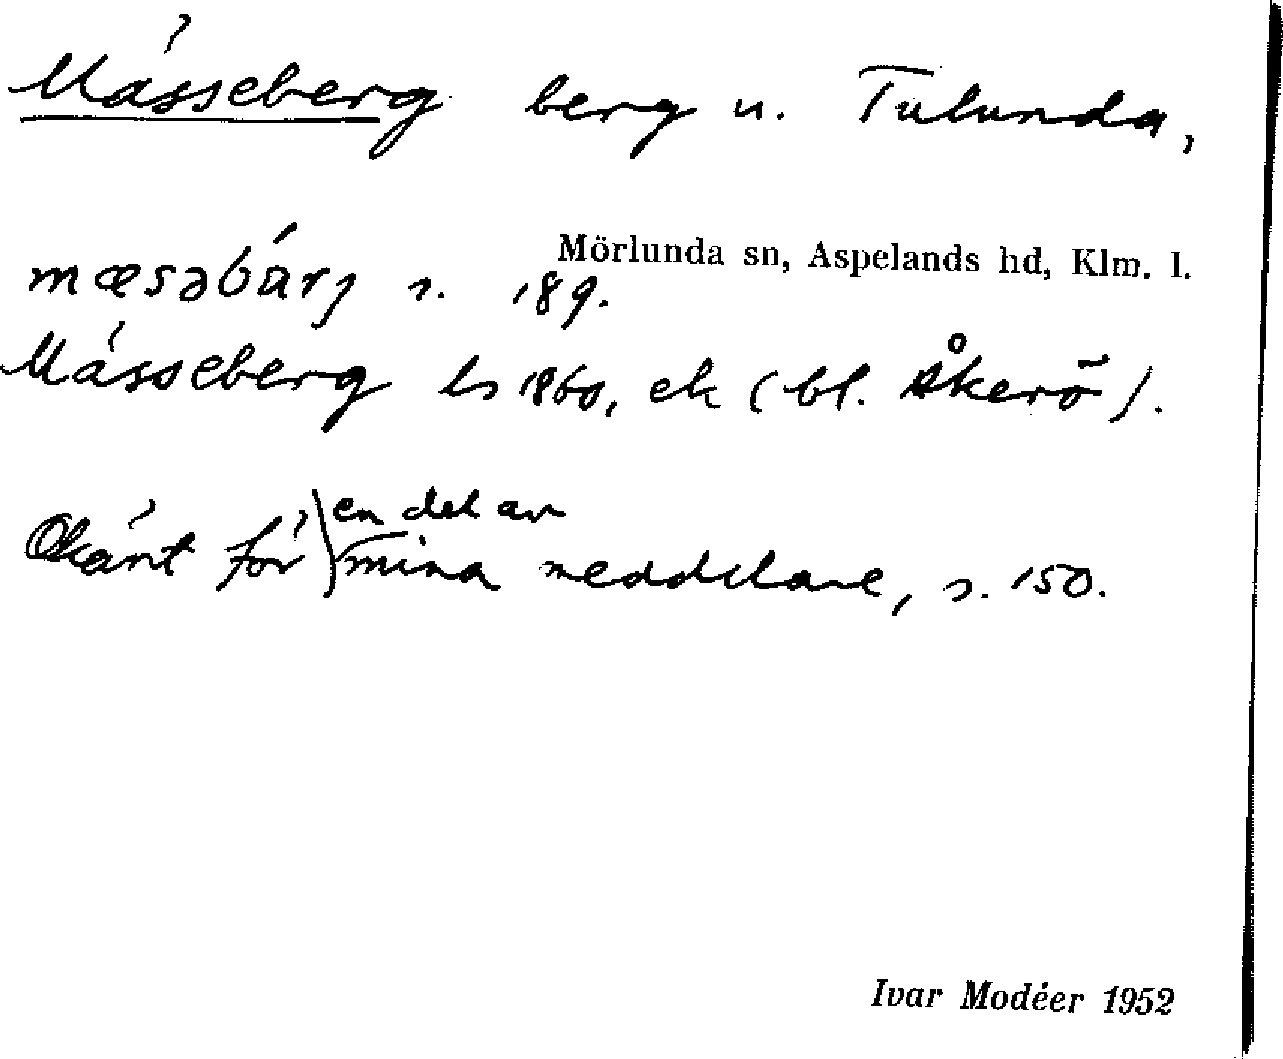 Mässeberg berg u. Tulunda,
Mörlunda sn, Aspelands hd, Klm. l.
mæsəbárj s. 189.
Mässeberg ls 1860, ek (bl. Åkerö).
en del av
Okänt för mina meddelare, s. 150.
Ivar Modéer 1952